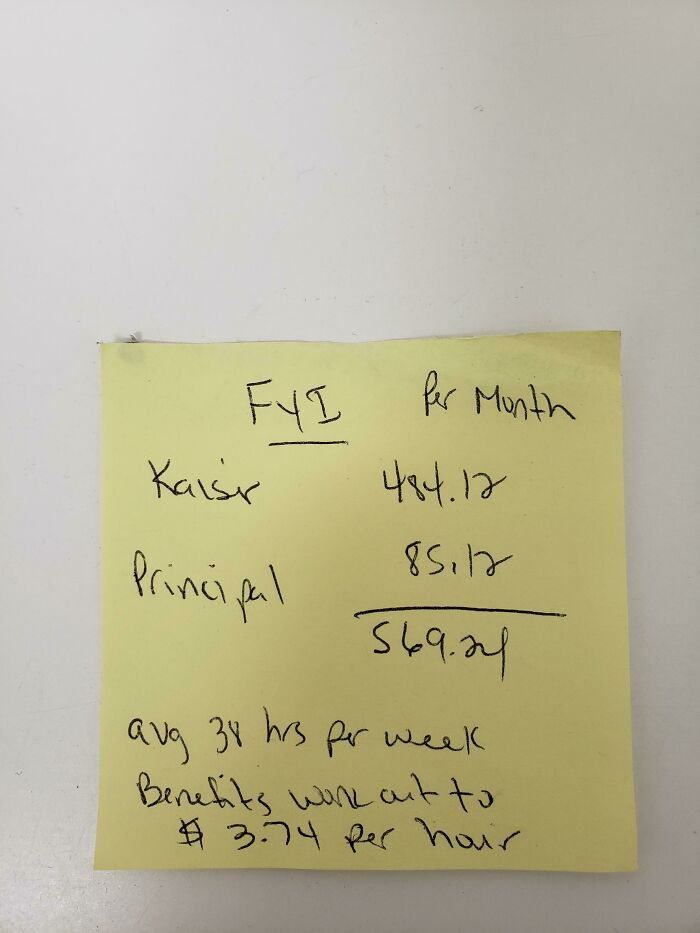 FYI Per Month
Kaiser 484.12
Principal 85.12
569.24
avg 38 hrs per week
Benefits work out to
$ 3.74 per hour